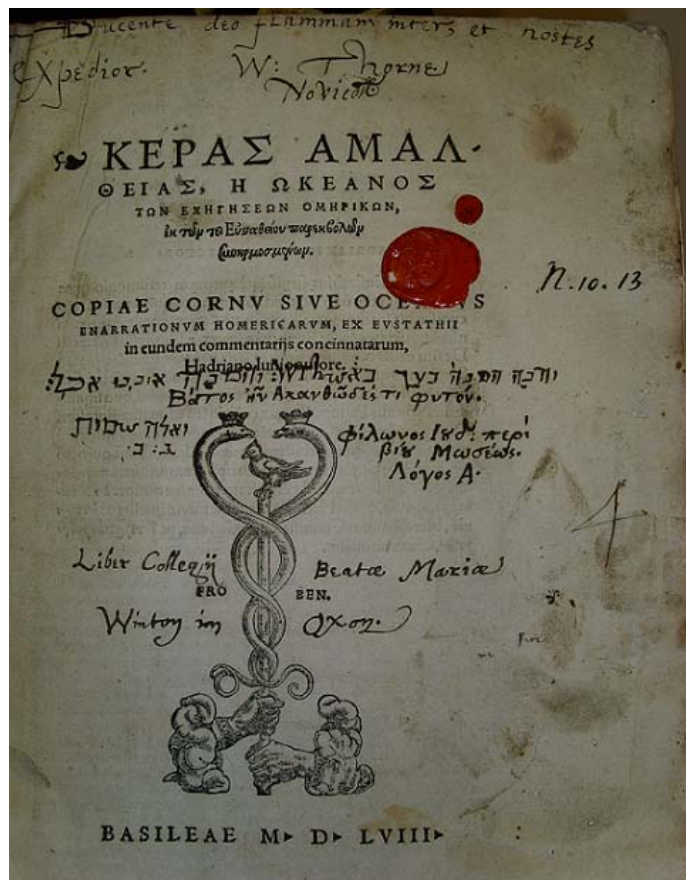 Ducente deo flammam inter, et hostes
Expedior. W: Thorne
ΚΕΡΑΣ ΑΜΑΛ-
ΘΕΙΑΣ, Η ΩΚΕΑΝΟΣ
ΤΩΝ ΕΞΗΓΗΣΕΩΝ ΟΜΗΡΙΚΩΝ,
ἐκ τῶν τοῦ Εὐσαθείου παρεκβολῶν
N. 10. 13
COPIAE CORNV SIVE OCEANVS
ENARRATIONVM HOMERICARVM, EX EVSTATHII
in eundem commentarijs concinnatarum,
Hadriano Iunio autore.
והנה הסנה בער באש והסנה איננו אכל:
Βάτος ἦν Ἀκανθῶδές τι φυτόν.
ואלה שמות
Φίλωνος Ιουδ: περὶ
βίου Μωσέως.
Λόγος Α.
Liber Collegij Beatæ Mariæ
FRO BEN.
Winton in Oxon.
BASILEAE M D LVIII